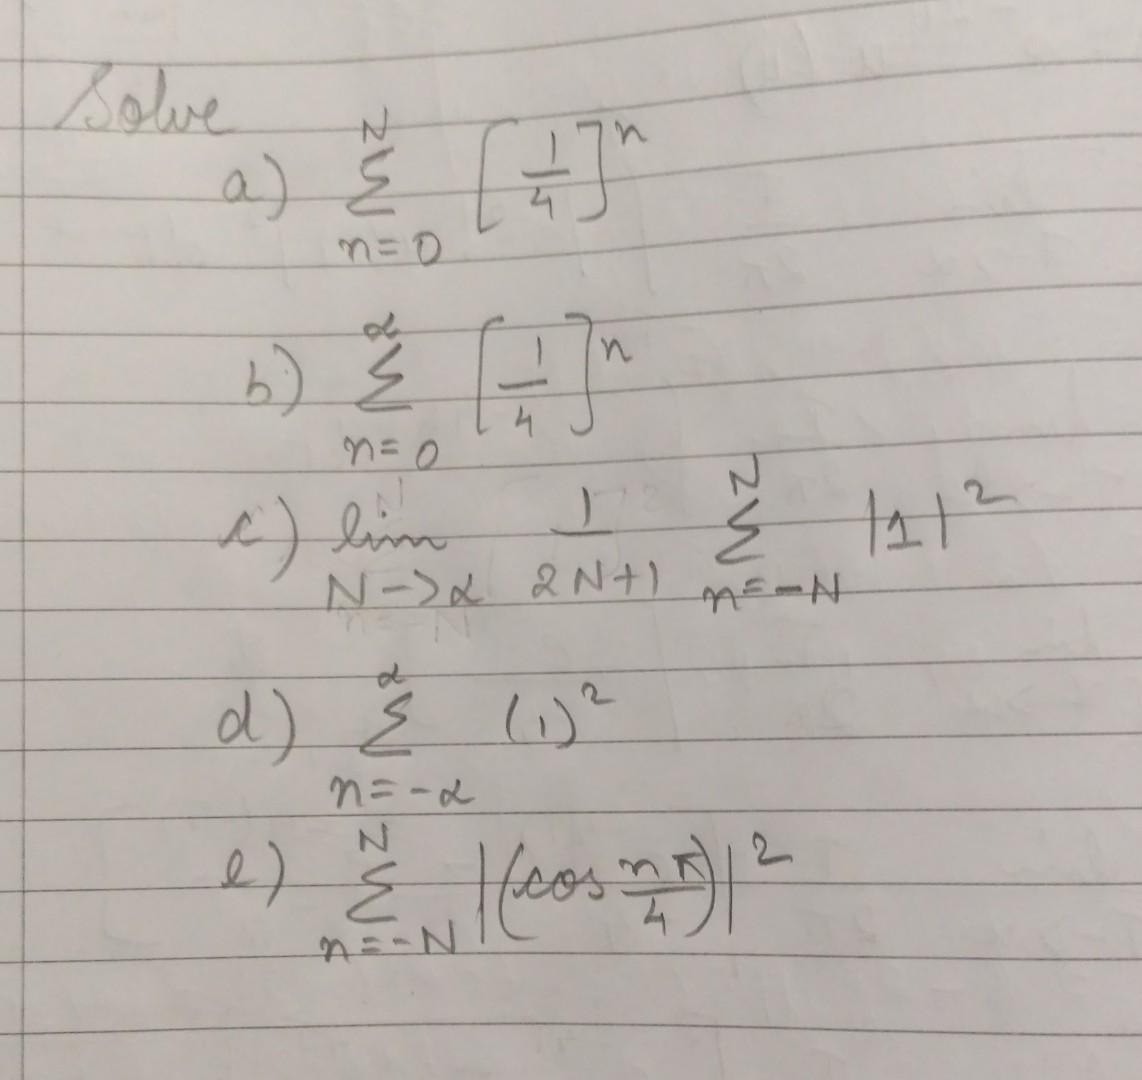 Solve
a) N Σ n=0 [1/4]^n
b) α Σ n=0 [1/4]^n
c) lim N->α 1/2N+1 N Σ n=-N |1|^2
d) α Σ n=-α (1)^2
e) N Σ n=-N |(cos nπ/4)|^2